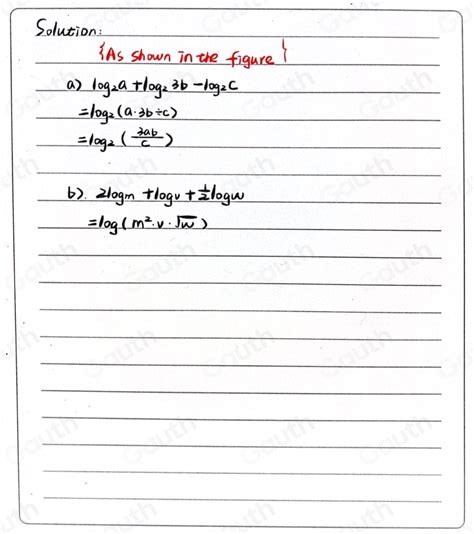 Solution:
{As shown in the figure}
a) log₂a + log₂ 3b - log₂c
= log₂ (a·3b÷c)
= log₂ (3ab/c)
b). 2logm + logv + ½logw
= log( m²·v·√w )
Gauth